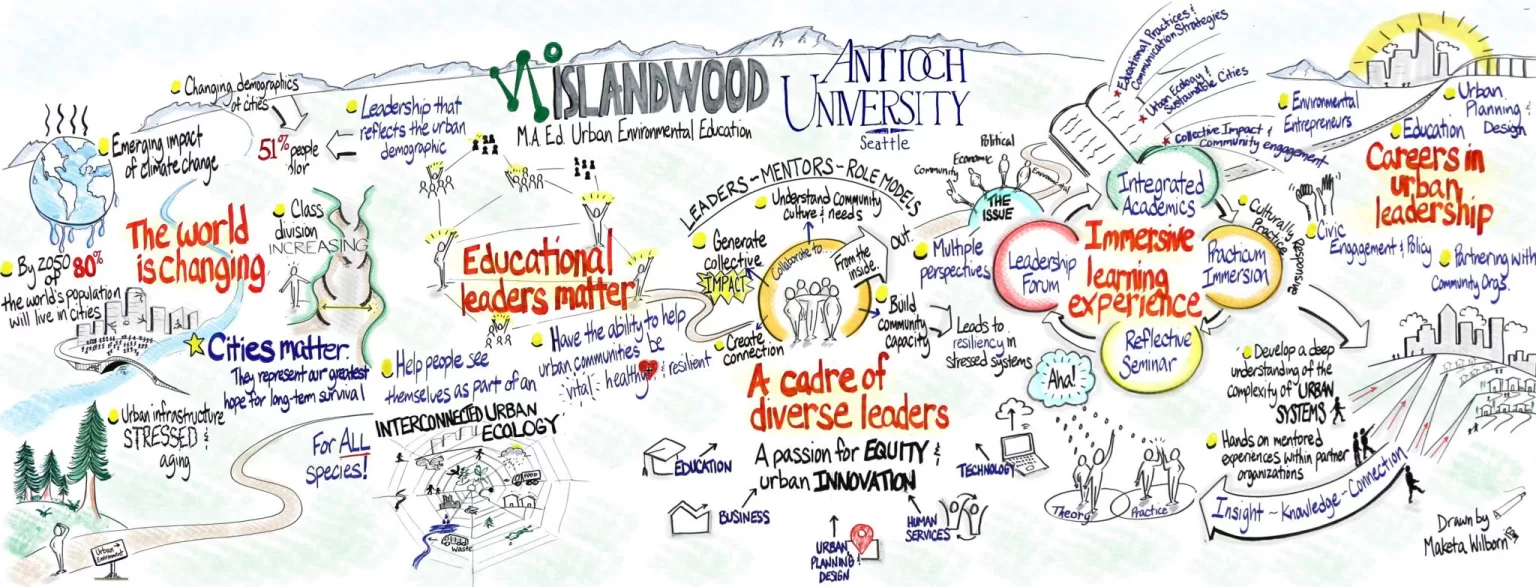 ISLANDWOOD
M.A. Ed. Urban Environmental Education
ANTIOCH
UNIVERSITY
Seattle
Changing demographics
of cities
51% people
olor
Leadership that
reflects the urban
demographic
Emerging impact
of climate change
The world
is changing
By 2050
80%
of
the world's population
will live in cities
Class
division
INCREASING
Cities matter.
They represent our greatest
hope for long-term survival
Urban infrastructure
STRESSED &
aging
For ALL
species!
Urban
Environment
Educational
leaders matter
Help people see
themselves as part of an
INTERCONNECTED URBAN
ECOLOGY
FOOD
WASTE
Have the ability to help
urban communities be
vital - healthy & resilient
LEADERS - MENTORS - ROLE MODELS
Understand Community
culture & needs
Generate
collective
IMPACT
Collaborate to...
From the
inside.
OUT
Build
community
capacity
Create
connection
Leads to
resiliency in
stressed systems
A cadre of
diverse leaders
A passion for EQUITY &
urban INNOVATION
EDUCATION
BUSINESS
URBAN
PLANNING &
DESIGN
HUMAN
SERVICES
TECHNOLOGY
Political
Economic
Community
Environmental
THE
ISSUE
Multiple
perspectives
Educational Practices &
Communication Strategies
Urban Ecology &
Sustainable Cities
Collective Impact &
Community engagement
Integrated
Academics
Leadership
Forum
Immersive
learning
experience
Practicum
Immersion
Reflective
Seminar
Culturally
Responsive
Practice
Aha!
Theory
Practice
Environmental
Entrepreneurs
Urban
Planning &
Design
Education
Careers in
urban
leadership
Civic
Engagement & Policy
Partnering with
Community Orgs.
Develop a deep
understanding of the
complexity of URBAN
SYSTEMS
Hands on mentored
experiences within partner
organizations
Insight - Knowledge - Connection
Drawn by
Maketa Wilborn